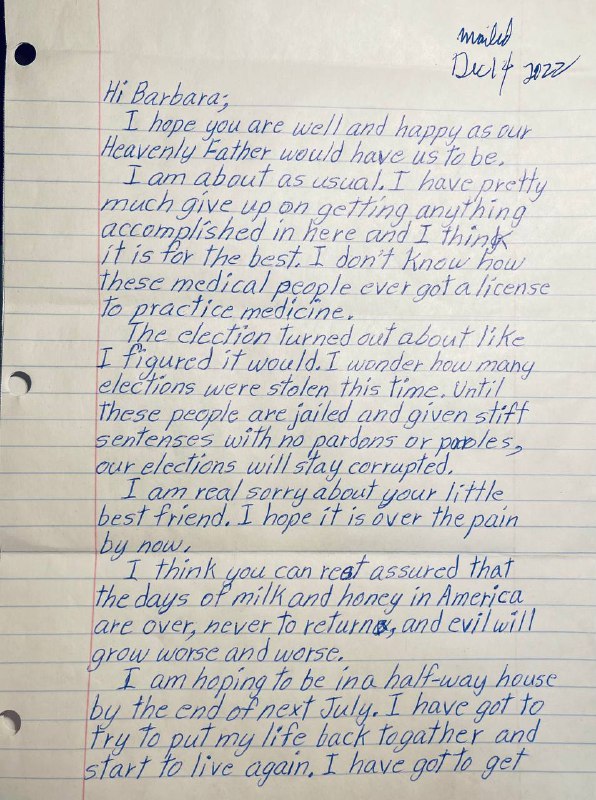 mailed
Dec 14 2022
Hi Barbara;
I hope you are well and happy as our
Heavenly Father would have us to be.
I am about as usual. I have pretty
much give up on getting anything
accomplished in here and I think
it is for the best. I don't know how
these medical people ever got a license
to practice medicine.
The election turned out about like
I figured it would. I wonder how many
elections were stolen this time. Until
these people are jailed and given stiff
sentenses with no pardons or paroles,
our elections will stay corrupted.
I am real sorry about your little
best friend. I hope it is over the pain
by now.
I think you can rest assured that
the days of milk and honey in America
are over, never to return, and evil will
grow worse and worse.
I am hoping to be in a half-way house
by the end of next July. I have got to
try to put my life back togather and
start to live again. I have got to get